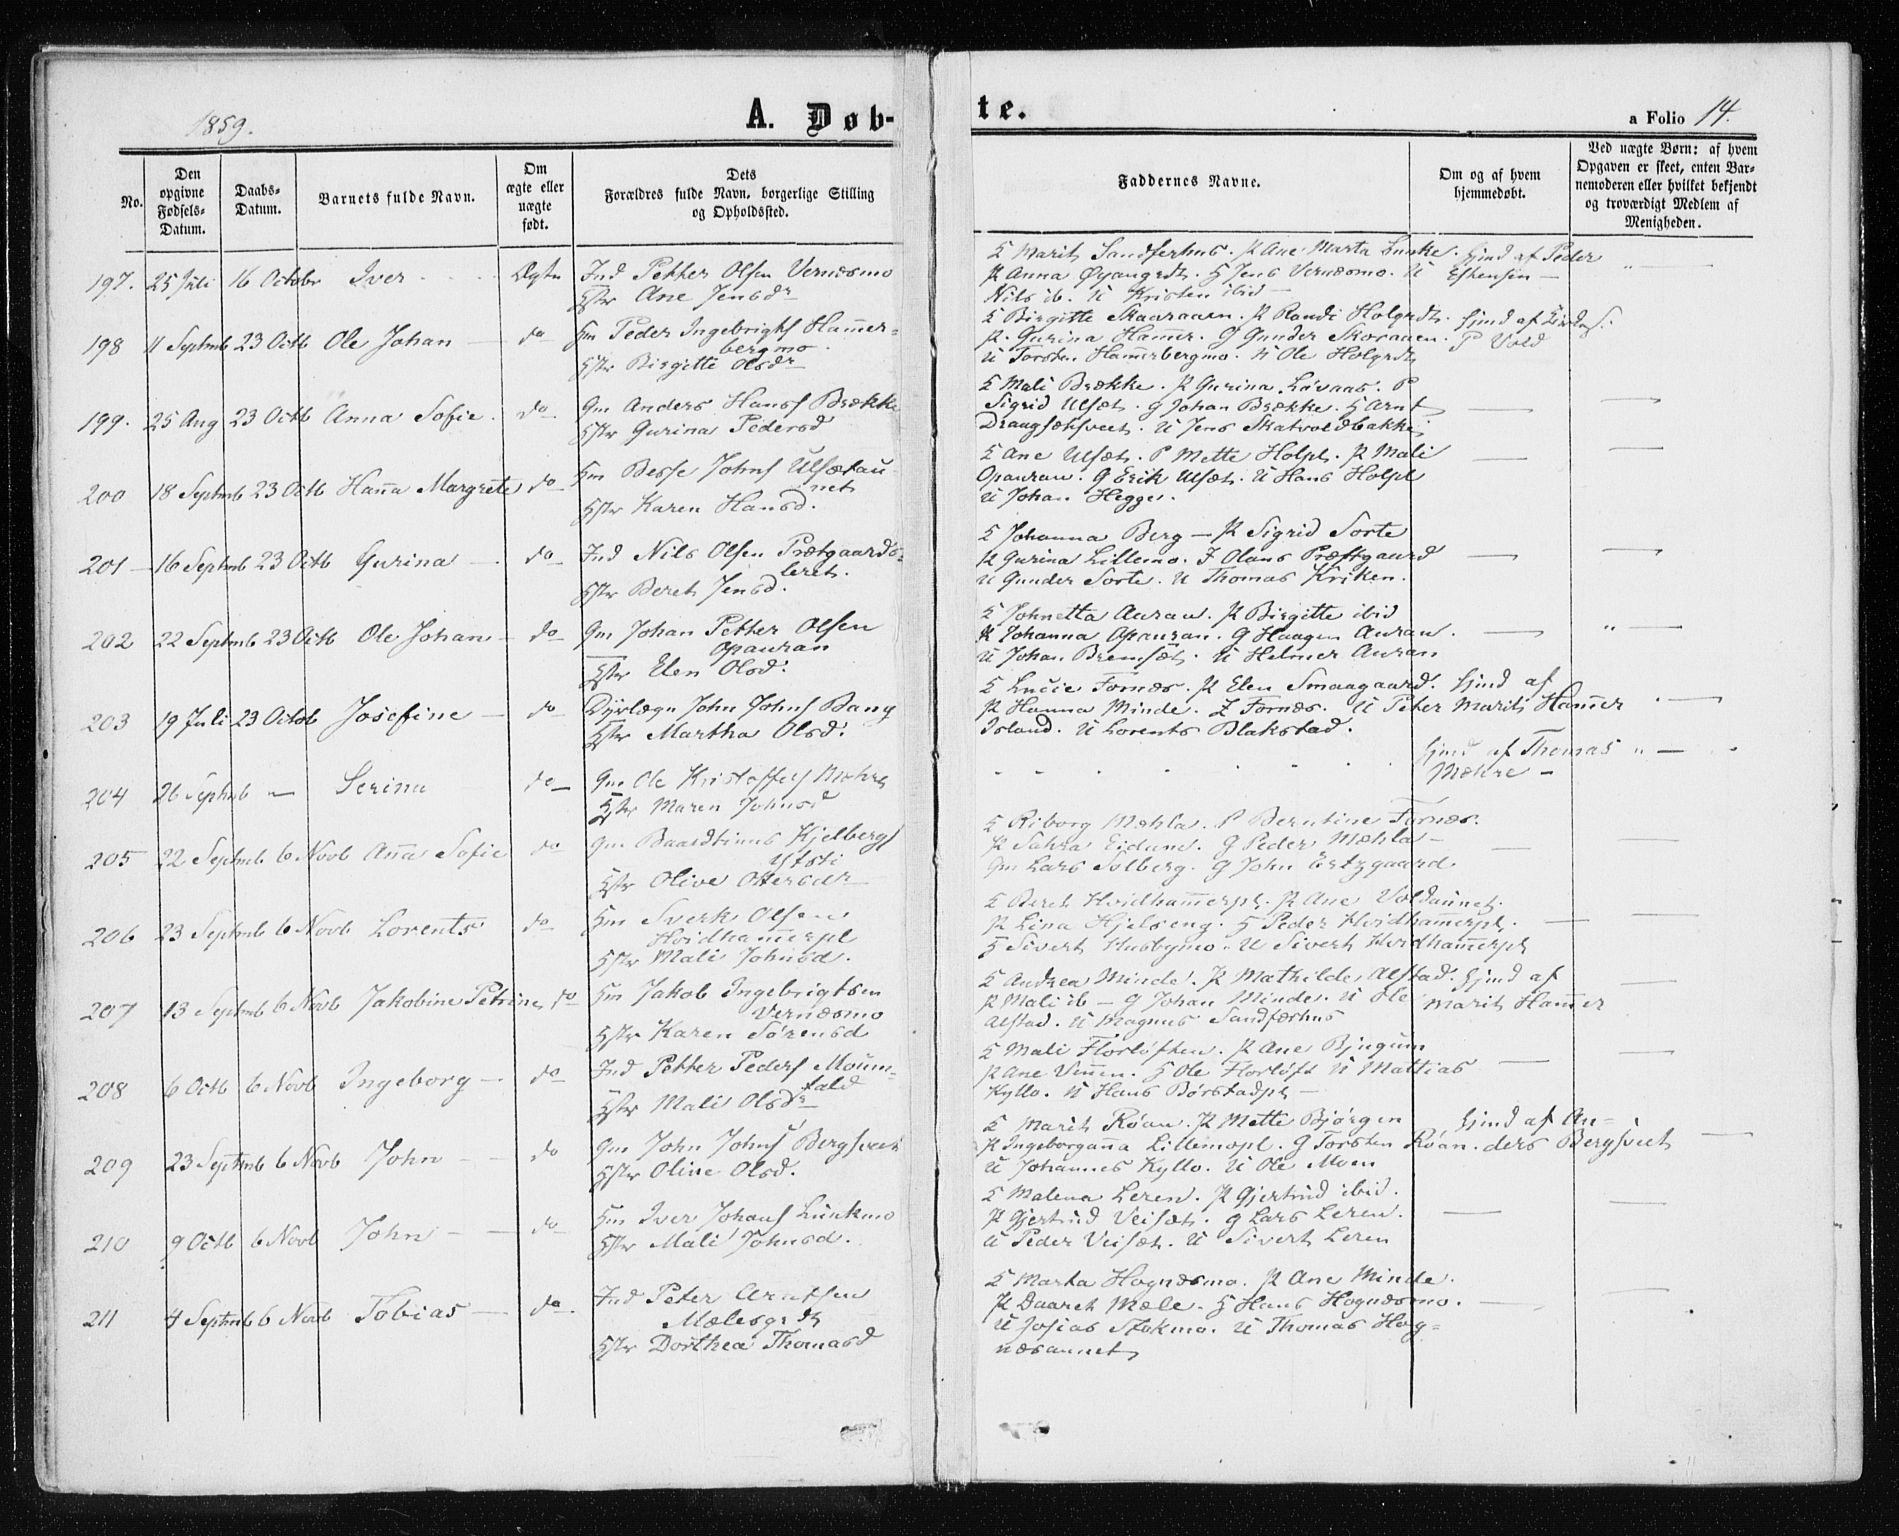 1859.
A. Døb-
te.
a Folio 14.
No.
Den opgivne Fødsels-Datum.
Daabs-Datum.
Barnets fulde Navn.
Om ægte eller uægte født.
Dets Forældres fulde Navn, borgerlige Stilling og Opholdssted.
Faddernes Navne.
Om og af hvem hjemmedøbt.
Ved uægte Børn: af hvem Opgaven er skeet, enten Barnemoderen eller hvilket bekjendt og troværdigt Medlem af Menigheden.
197. 25 Juli 16 Octobr Iver Ægte Ind Petter Olsen Vernæsmo
Hstr Ane Jensdr
K Marit Sandferhus. P Ane Marta Lunke. Hjmd af Peder
P Anna Øyangrdt. H Jens Vernæsmo. U Eskensen —
Nils ib. U Kristen ibid —
198 11 Septmb 23 Octb Ole Johan do Hm Peder Ingebrigts Ham̄er=
bergmo.
Hstr Birgitte Olsdr
K Birgitte Skaaraaen. P Randi Holgrdt. Hjmd af
P. Gurina Ham̄er. G Gunder Skoraaen. P Vold
U Torsten Ham̄erbergmo. U Ole Holgrdt
199. 25 Aug 23 Octb Anna Sofie. do Gm Anders Hans Brække
Hstr Gurina Pedersd
K Mali Brække. P Gurina Løvaas. P
Sigrid Ulsæt. G Johan Brække. H Arnt
Draugsætsveet. U Jens Skatvoldbakke
200 18 Septmb 23 Octb Han̄a Margrete do Hm Besse Johns Ulsætau
net
Hstr Karen Hansd.
K Ane Ulsæt. P Mette Holpl. P Mali
Opauran. G Erik Ulsæt. U Hans Holpl
U Johan Hegge.
201 — 16 Septmb 23 Octb Gurina — do Ind Nils Olsen Prætgaards=
leret.
Hstr Beret Jensd.
K Johanna Berg — P Sigrid Sorte
P Gurina Lillemo. I Olaus Præstgaard
U Gunder Sorte. U Thomas Kriken.
202 22 Septmb 23 Octb Ole Johan — do Gm Johan Petter Olsen
Opauran
Hstr Elen Olsd.
K Johnetta Auran. P Birgitte ibid
P Johanna Opauran. G Haagen Auran.
U Johan Bremsæt. U Helmer Auran
203 19 Juli 23 Octob Josefine — do Dyrlægn John Johns Bang
Hstr Martha Olsd.
K Lucie Fornæs. P Elen Smaagaard. Hjmd af
P Hanna Minde. I Fornæs. U Peter Marit Ham̄er
Island. U Lorents Blakstad.
204 26 Septmb — Serina do — Gm Ole Kristoffers Mæhre
Hstr Maren Johnsd
Hjmd af Thomas
Mæhre —
205 22 Septmb 6 Novb An̄a Sofie do Gm Baardtinus Kjelbergs
Ytsti
Hstr Olive Ottersdr
K Riborg Mæhla. P Berntine Fornæs.
P Sahra Eidum. G Peder Mæhla —
Gm Lars Solberg. G John Ertzgaard.
206 23 Septmb 6 Novb Lorents do Hm Sverk Olsen
Hvidham̄erpl
Hstr Mali Johnsd.
K Beret Hvidham̄erpl. P Ane Voldaunet.
P Lina Hjelseng. H Peder Hvidham̄erpl.
H Sivert Husbymo. U Sivert Hvidham̄erpl
207 13 Septmb 6 Novb Jakobine Petrine do Hm Jakob Ingebrigtsen
Vernæsmo
Hstr Karen Sørensd
K Andrea Minde. P Mathilde Alstad. Hjmd af
P Mali ib — G Johan Minde. U Ole Marit Ham̄er
Alstad. U Magnus Sandfærhus
208 6 Octb 6 Novb Ingeborg — do Ind Petter Peders Moum=
tald
Hstr Mali Olsdr
K Mali Florløften. P Ane Bjugum
P Ane Vinnen. H Ole Florløft U Mattias
Kyllo. U Hans Børstadpl —
209 23 Septmb 6 Novb John — do Gm John Johns Bergsveet
Hstr Oline Olsd.
K Marit Røan. P Mette Bjørgen Hjmd af An=
P Ingeboran̄a Lillemopl. G Torsten Røan. ders Bergsveet
U Johannes Kyllo. U Ole Moen
210 9 Octb 6 Novb John — do Hm Iver Johans Lunkmo
Hstr Mali Johnsd.
K Malena Leren. P Gjertrud ibid.
P Gjertrud Veisæt. G Lars Leren.
U Peder Veisæt. U Sivert Leren
211 4 Septmb 6 Novb Tobias — do. Ind Peter Arntsen
Mælesgrdt
Hstr Dorthea Thomasd
K Marta Hognæsmo. P Ane Minde.
P Daaret Mæle. H Hans Hognæsmo.
U Josias Stokmo. U Thomas Hog=
næsaunet